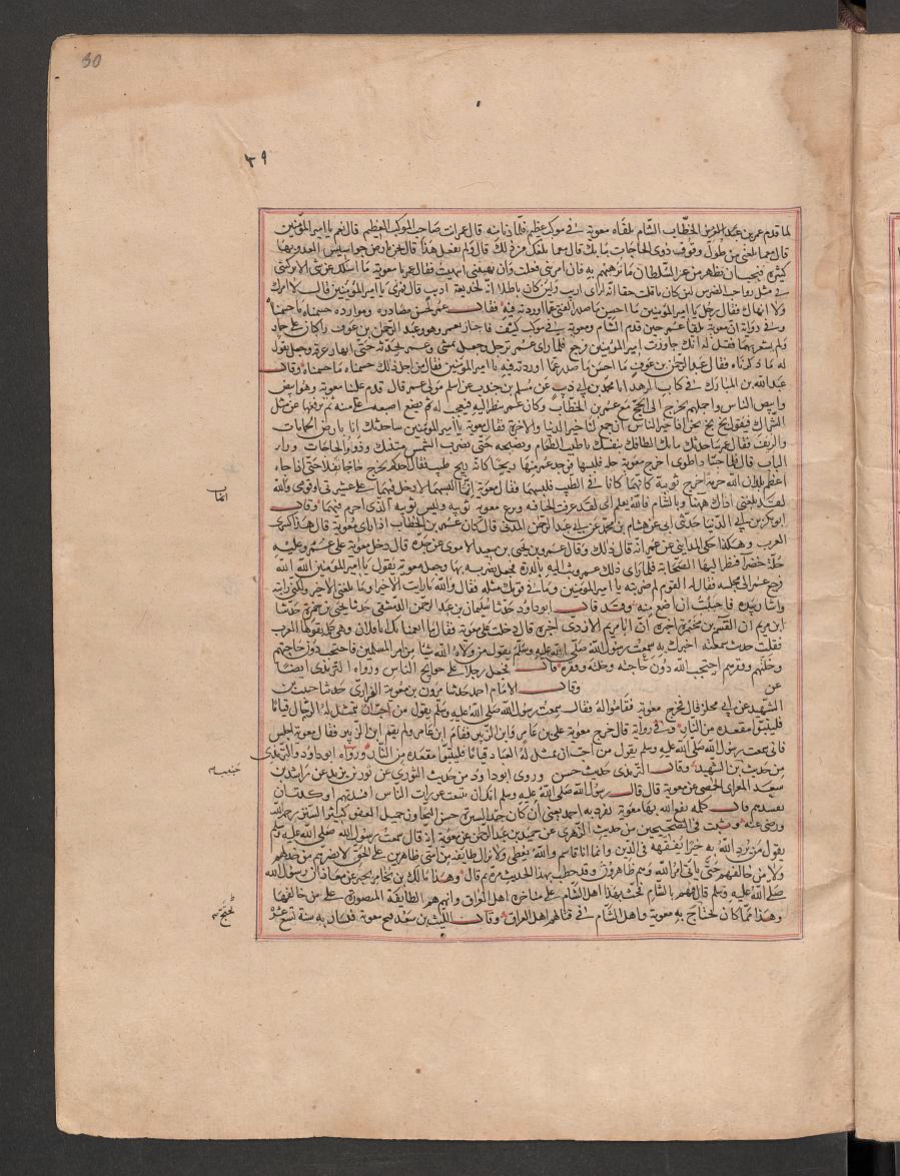 30
٣٩
لما قدم عمر بن الخطاب الشام تلقاه معوية في موكب عظيم فلما دنا منه قال له عمر انت صاحب الموكب العظيم قال نعم يا امير المؤمنين
قال مع ما بلغني من طول وقوف ذوي الحاجات ببابك قال مع ما بلغك من ذلك قال ولم تفعل هذا قال نحن بارض جواسيس العدو بها
كثيرة فيجب ان نظهر من عز السلطان ما نرهبهم به فان امرتني فعلت وان نهيتني انتهيت فقال عمر يا معوية ما اسالك عن شي الا تركتني
في مثل رواجب الضرس لئن كان ما قلت حقا انه لراي اريب ولئن كان باطلا انه لخديعة اديب قال فمرني يا امير المؤمنين قال لا امرك
ولا انهاك فقال رجل يا امير المؤمنين ما احسن ما صدر الفتى عما اوردته فيه فقال عمر لحسن مصادره وموارده جشمناه ما جشمناه
وفي رواية ان معوية تلقا عمر حين قدم الشام ومعوية في موكب كثيف فاجتاز بعمر وهو وعبد الرحمن بن عوف راكبان على حمار
ولم يشعر بهما فقيل له انك جاوزت امير المؤمنين فرجع فلما راى عمر ترجل وجعل يقول
له ما ذكرناه فقال عبد الرحمن بن عوف ما احسن ما صدر عما اوردته فيه يا امير المؤمنين فقال من اجل ذلك جشمناه ما جشمناه وقال
عبد الله بن المبارك في كتاب الزهد انا محمد بن ابي ذيب عن مسلم بن جندب عن اسلم مولى عمر قال قدم علينا معوية وهو ابيض
وابض الناس واجملهم فخرج الى الحج مع عمر بن الخطاب وكان عمر ينظر اليه فيعجب له ثم يضع اصبعه على متنه ثم يرفعها عن مثل
الشراك فيقول بخ بخ نحن اذا خير الناس ان جمع لنا خير الدنيا والاخرة فقال معوية يا امير المؤمنين ساحدثك انا بارض الحمامات
والريف فقال عمر ساحدثك ما بك الطافك نفسك باطيب الطعام وتصبحك حتى تضرب الشمس متنيك وذوو الحاجات وراء
الباب قال فلما جئنا ذا طوى اخرج معوية حلة فلبسها فوجد عمر منها ريحا كانه ريح طيب فقال يعمد احدكم يخرج حاجا تفلا حتى اذا جاء
اعظم بلدان الله حرمة اخرج ثوبيه كانهما كانا في الطيب فلبسهما فقال معوية انما لبستهما لادخل فيهما على عشيرتي او قومي والله
لقد بلغني اذاك ههنا وبالشام فالله يعلم اني لقد عرفت الحيا فيه ونزع معوية ثوبيه ولبس ثوبيه الذي احرم فيهما وقال
ابو بكر بن ابي الدنيا حدثني ابي عن هشام بن محمد عن ابي عبد الرحمن المدني قال كان عمر بن الخطاب اذا راى معوية قال هذا كسرى
العرب وهكذا حكى المدايني عن عمر انه قال ذلك وقال عمرو بن يحيى بن سعيد الاموي عن جده قال دخل معوية على عمر وعليه
حلة خضرا فنظر اليها الصحابة فلما راى ذلك عمر وثب اليه بالدرة فجعل يضربه بها وجعل معوية يقول يا امير المؤمنين الله الله
فرجع عمر الى مجلسه فقال له القوم لم ضربته يا امير المؤمنين وما في قومك مثله فقال والله ما رايت الا خيرا وما بلغني الا خير ولكني رايته
واشار بيده فاحببت ان اضع منه وقد قال ابو داود حدثنا سليمان بن عبد الرحمن الدمشقي حدثنا يحيى بن حمزة حدثنا
ابن مريم ان القسم بن مخيمرة اخبره ان ابا مريم الازدي اخبره قال دخلت على معوية فقال ما انعمنا بك يا فلان وهي كلمة تقولها العرب
فقلت حديث سمعته اخبرك به سمعت رسول الله صلى الله عليه وسلم يقول من ولاه الله شيا من امر المسلمين فاحتجب دون حاجتهم
وخلتهم وفقرهم احتجب الله دون حاجته وخلته وفقره قال فجعل رجلا على حوايج الناس ورواه الترمذي ايضا
عن وقال الامام احمد حدثنا مروان بن معوية الفزاري حدثنا حبيب بن
الشهيد عن ابي مجلز قال خرج معوية فقاموا له فقال سمعت رسول الله صلى الله عليه وسلم يقول من احب ان يتمثل له الرجال قياما
فليتبوا مقعده من النار وفي رواية قال خرج معوية على ابن عامر وابن الزبير فقام ابن عامر ولم يقم ابن الزبير فقال معوية اجلس
فاني سمعت رسول الله صلى الله عليه وسلم يقول من احب ان يمثل له العباد قياما فليتبوا مقعده من النار ورواه ابو داود والترمذي
من حديث بن الشهيد وقال الترمذي حديث حسن وروى ابو داود من حديث الثوري عن ثور بن يزيد عن راشد بن
سعد المقرائي الحمصي عن معوية قال قال رسول الله صلى الله عليه وسلم انك ان تتبعت عورات الناس افسدتهم او كدت ان
تفسدهم قال كلمة نفع الله بها معوية تفرد به احمد يعني انه كان جيد السيرة حسن التجاوز جميل العفو كثير الستر رحمه الله
ورضي عنه وثبت في الصحيحين من حديث الزهري عن حميد بن عبد الرحمن عن معوية انه قال سمعت رسول الله صلى الله عليه وسلم
يقول من يرد الله به خيرا يفقهه في الدين وانما انا قاسم والله يعطي ولا تزال طايفة من امتي ظاهرين على الحق لا يضرهم من خذلهم
ولا من خالفهم حتى ياتي امر الله وهم ظاهرون وقد خطب بهذا الحديث مرة ثم قال وهذا مالك بن يخامر يخبر عن معاذ ان رسول الله
صلى الله عليه وسلم قال وهم بالشام فحث بهذا اهل الشام على مناجزة اهل العراق وانهم هم الطايفة المنصورة على من خالفها
وهذا مما كان يحتج به معوية واهل الشام في قتالهم اهل العراق وقال الليث بن سعد فتح معوية قيسارية سنة تسع عشرة